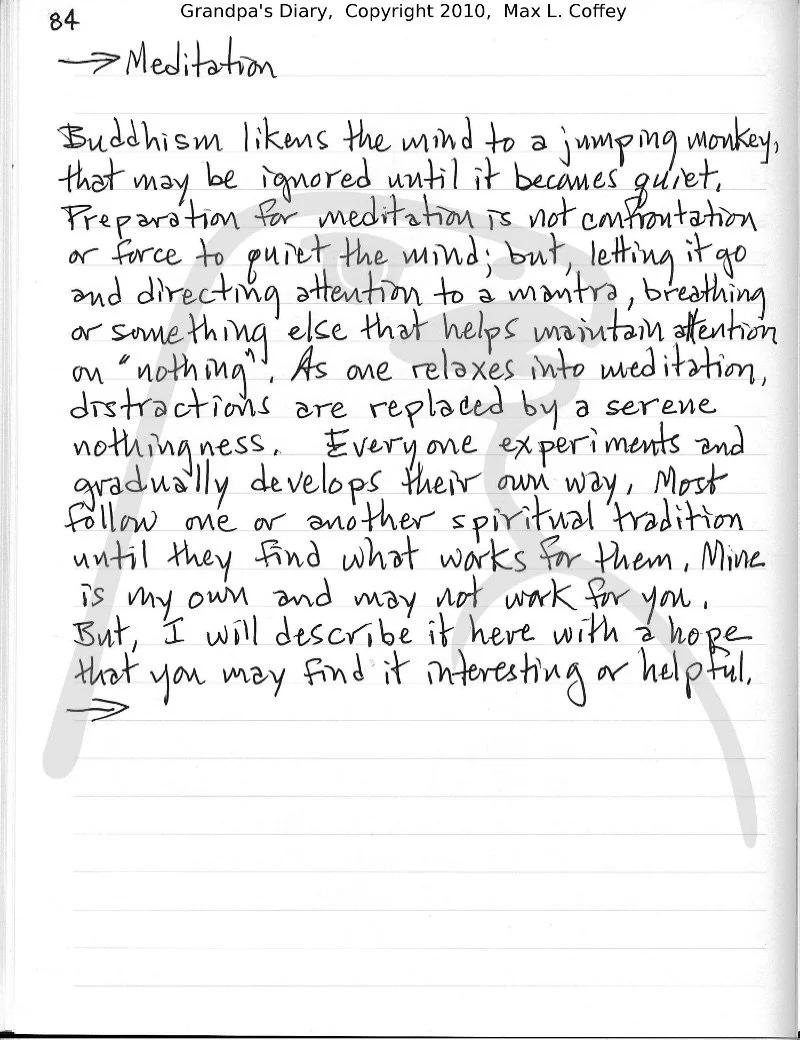 Grandpa's Diary, Copyright 2010, Max L. Coffey
84
→ Meditation
Buddhism likens the mind to a jumping monkey,
that may be ignored until it becomes quiet.
Preparation for meditation is not confrontation
or force to quiet the mind; but, letting it go
and directing attention to a mantra, breathing
or something else that helps maintain attention
on "nothing". As one relaxes into meditation,
distractions are replaced by a serene
nothingness. Everyone experiments and
gradually develops their own way. Most
follow one or another spiritual tradition
until they find what works for them. Mine
is my own and may not work for you.
But, I will describe it here with a hope
that you may find it interesting or helpful.
→